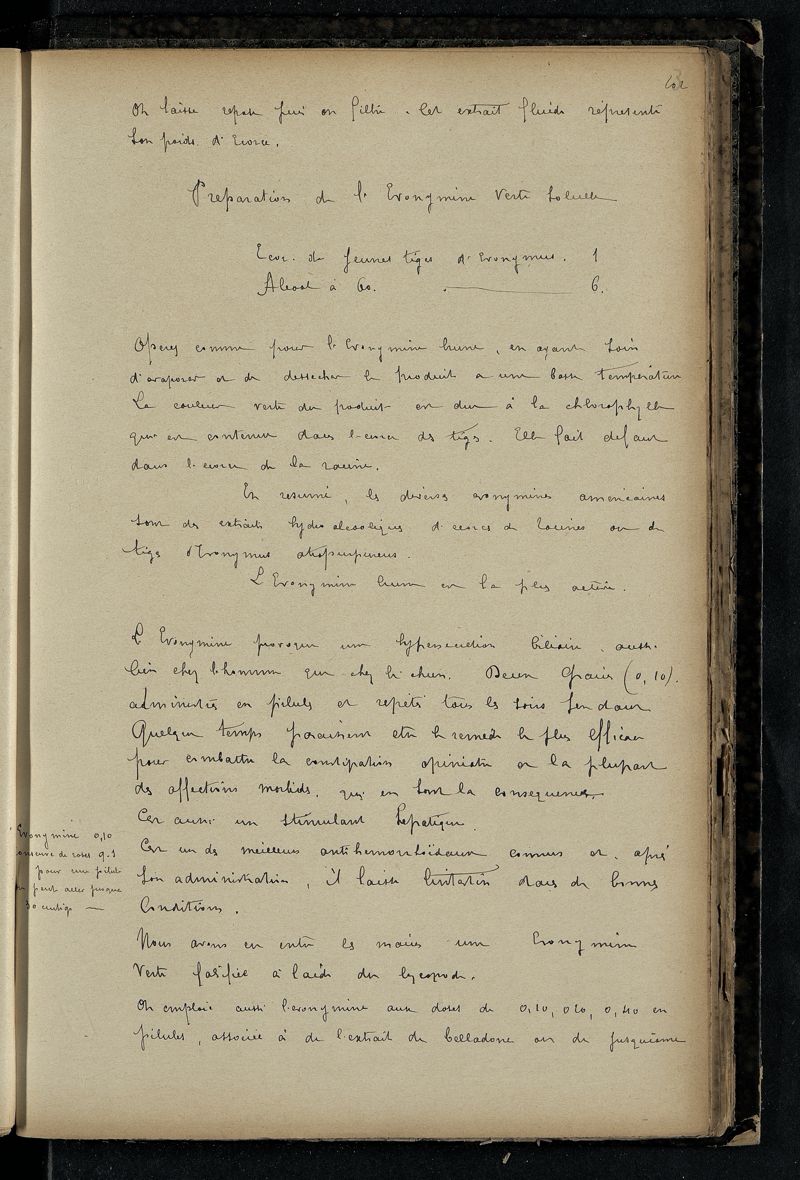 On laisse repose puis on filtre. Cet extrait fluide représente
son poids d'Ecorce.
Preparation de l'Evonymine Verte Soluble
Ecorc. de Jeunes tiges d'Evonymus. 1
Alcool à 60. 6.
Operez comme pour l'Evonymine brune, en ayant soin
d'evaporer et de dessecher le produit a une basse température
La couleur verte du produit est due à la chlorophylle
qui est contenue dans l'ecorce des tiges. Elle fait defaut
dans l'ecorce de la racine.
En resumé, les diverses evonymines américaines
sont des extraits hydro alcooliques d'ecorces de racines ou de
tiges d'Evonymus atropurpureus.
L'Evonymine brune est la plus active.
L'Evonymine provoque une hypersecretion biliaire aussi
bien chez l'homme que chez le chien. Deux Grains (0,10).
administrés en pilules et repetés tous les soirs pendant
Quelque temps paraissent etre le remede le plus efficace
pour combattre la constipation opiniatre et la plupart
des affections morbides, qui en sont la consequence.
C'est aussi un stimulant hepatique.
C'est un des meilleurs antihemorrhoidaux connus et, après
son administration, il laisse l'intestin dans de bonnes
Conditions.
Evonymine 0,10
conserve de roses q.s
pour une pilule
on peut aller jusque
30 centigr —
Nous avons eu entre les mains une Evonymine
Verte falsifiée à l'aide du lycopode.
On emploie aussi l'evonymine aux doses de 0,10, 0,20, 0,40 en
pilules, associée à de l'extrait de belladone ou de Jusquiame